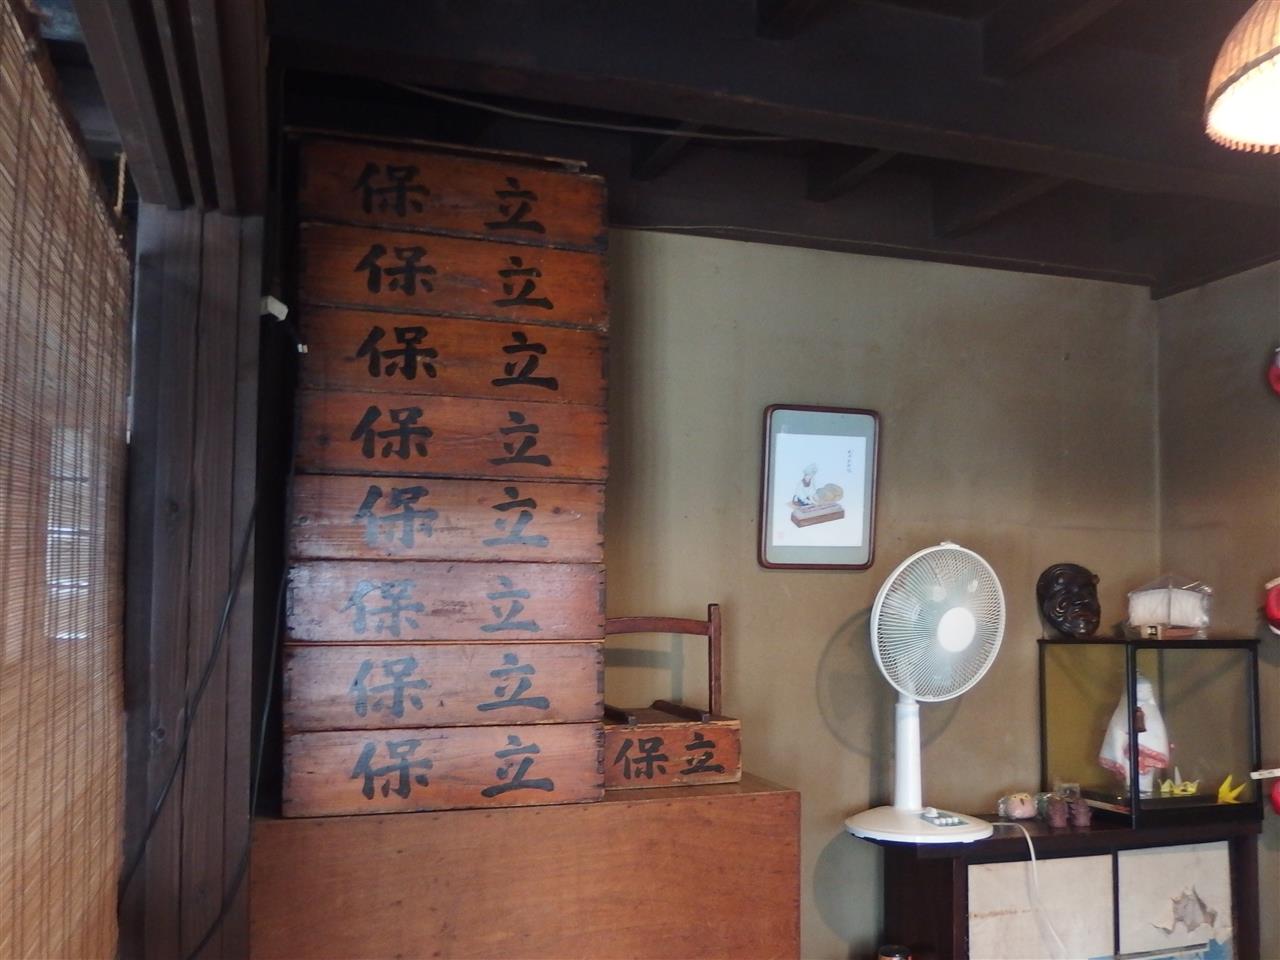 保立
保立
保立
保立
保立
保立
保立
保立
保立